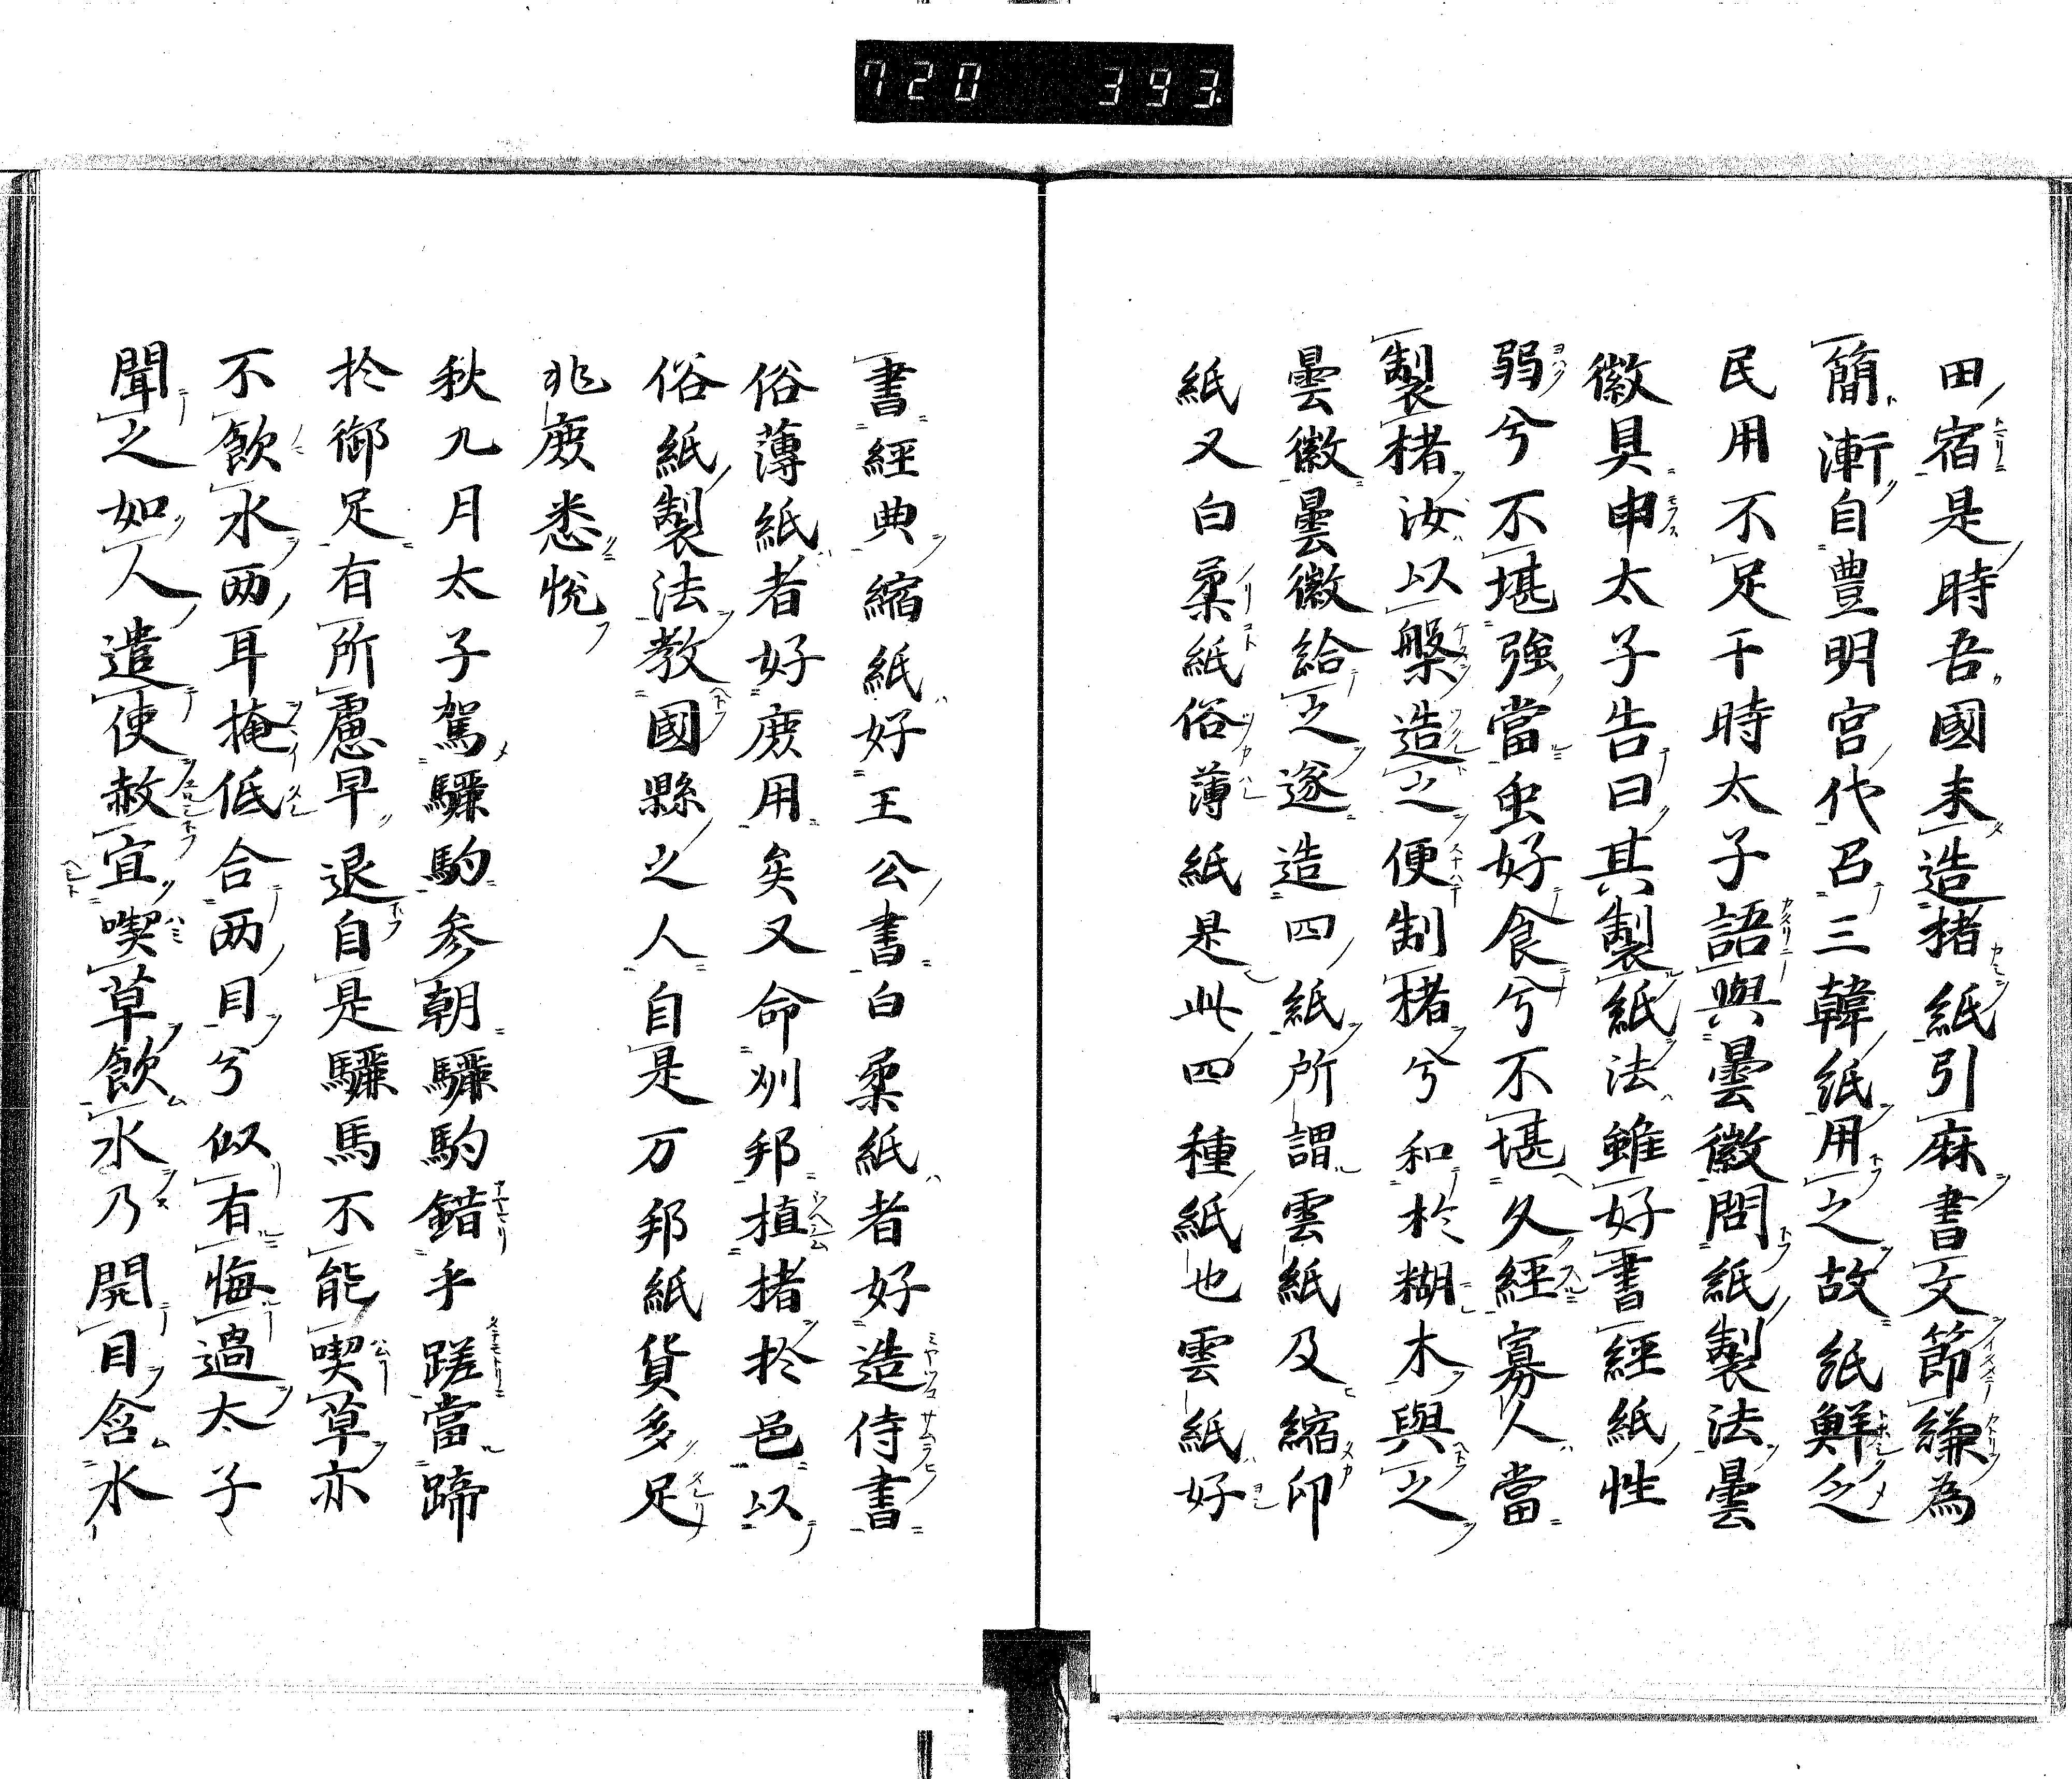 720 393.
田宿是時吾國未造楮紙引麻書文節縑為
簡漸自豊明宮代召三韓紙用之故紙鮮乏
民用不足干時太子語與曇徵問紙製法曇
徵具申太子告曰其製紙法雖好書經紙性
弱兮不堪強當虫好食兮不堪久經寡人當
製楮汝以槃造之便制楮兮和於糊木與之
曇徵曇徵給之遂造四紙所謂雲紙及縮印
紙又白柔紙俗薄紙是此四種紙也雲紙好
書經典縮紙好王公書白柔紙者好造侍書
俗薄紙者好庶用矣又命州邦植楮於邑以
俗紙製法教國縣之人自是万邦紙貨多足
兆庶悉悅
秋九月太子駕驪駒参朝驪駒錯乎蹉當蹄
於御足有所慮早退自是驪馬不能喫草亦
不飲水两耳掩低合两目兮似有悔過太子
聞之如人遣使赦宜喫草飲水乃開目含水